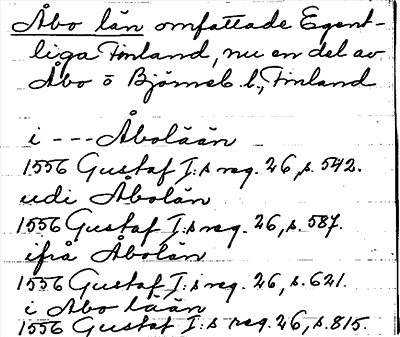 Åbo län omfattade Egent-
liga Finland, nu en del av
Åbo o Björneb. l., Finland
i --- Åbolään
1556 Gustaf I:s reg. 26, s. 542.
udi Åbolän
1556 Gustaf I:s reg. 26, s. 587.
ifrå Åbolän
1556 Gustaf I:s reg. 26, s. 621.
i Åbo lään
1556 Gustaf I:s reg. 26, s. 815.